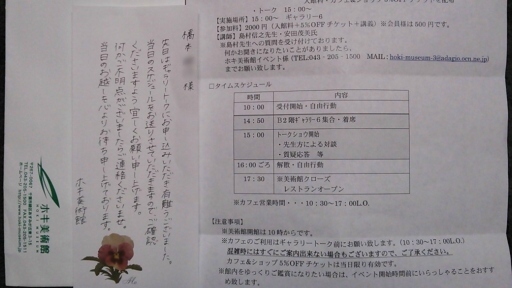 ・トーク 15:00～
【実施場所】15:00～ ギャラリー6
【参加料】2000円(入館料+5%OFFチケット+講義)※会員様は500円です。
【講師】島村信之先生・安田茂美氏
※島村先生への質問を受け付けております。
何かお聞きになりたいことがありましたら、
ホキ美術館イベント係(TEL:043-205-1500 MAIL:hoki-museum-3@adagio.ocn.ne.jp)
までお願い致します。
□タイムスケジュール
時間 内容
10:00 受付開始・自由行動
14:50 B2階ギャラリー6集合・着席
15:00 トークショウ開始
・先生方による対談
・質疑応答 等
16:00ごろ 解散・自由行動
17:30 ※美術館クローズ
レストランオープン
※カフェ営業時間・・・10:30～17:00L.O.
【注意事項】
※美術館開館は10時からです。
※カフェのご利用はギャラリートーク前にお願い致します。(10:30～17:00L.O.)
混雑時にはすぐにご案内出来ない場合もございますので、ご了承ください。
カフェ&ショップ5%OFFチケットは当日限り有効です。
※館内をゆっくりご鑑賞になりたい場合は、イベント開始時間前にいらっしゃることをおすすめ致します。
橋本 様
次日はギャラリートークにお申し込みいただき有難うございました。
当日のスケジュールをお送りさせていただきますのでご確認
くださいますよう宜しくお願い申し上げます。
何かご不明点がございましたらご連絡くださいませ。
当日のお越しを心よりお待ち申し上げております。
ホキ美術館
ホキ美術館